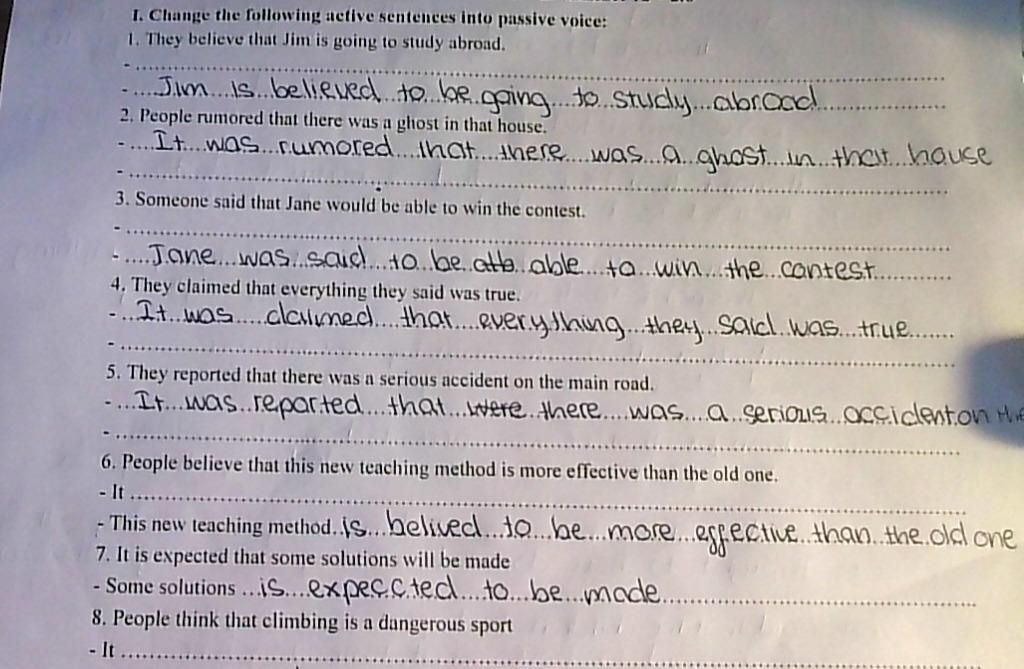 I. Change the following active sentences into passive voice:
1. They believe that Jim is going to study abroad.
-
- Jim is believed to be going to study abroad
2. People rumored that there was a ghost in that house.
- It was rumored that there was a ghost in that hause
-
3. Someone said that Jane would be able to win the contest.
-
- Jane was said to be able to win the contest
4. They claimed that everything they said was true.
- It was claimed that everything they said was true
-
5. They reported that there was a serious accident on the main road.
- It was reported that were there was a serious accident on the
-
6. People believe that this new teaching method is more effective than the old one.
- It
- This new teaching method is belived to be more effective than the old one
7. It is expected that some solutions will be made
- Some solutions is expeccted to be made
8. People think that climbing is a dangerous sport
- It